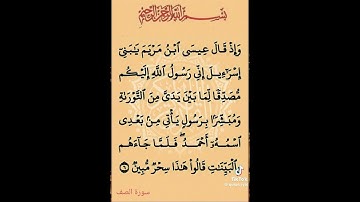 بِسْمِ ٱللَّهِ ٱلرَّحْمَٰنِ ٱلرَّحِيمِ
وَإِذْ قَالَ عِيسَى ٱبْنُ مَرْيَمَ يَٰبَنِىٓ
إِسْرَٰٓءِيلَ إِنِّى رَسُولُ ٱللَّهِ إِلَيْكُم
مُّصَدِّقًا لِّمَا بَيْنَ يَدَىَّ مِنَ ٱلتَّوْرَىٰةِ
وَمُبَشِّرًۢا بِرَسُولٍ يَأْتِى مِنۢ بَعْدِى
ٱسْمُهُۥٓ أَحْمَدُ ۖ فَلَمَّا جَآءَهُم
بِٱلْبَيِّنَٰتِ قَالُوا۟ هَٰذَا سِحْرٌ مُّبِينٌ ٦
سورة الصف